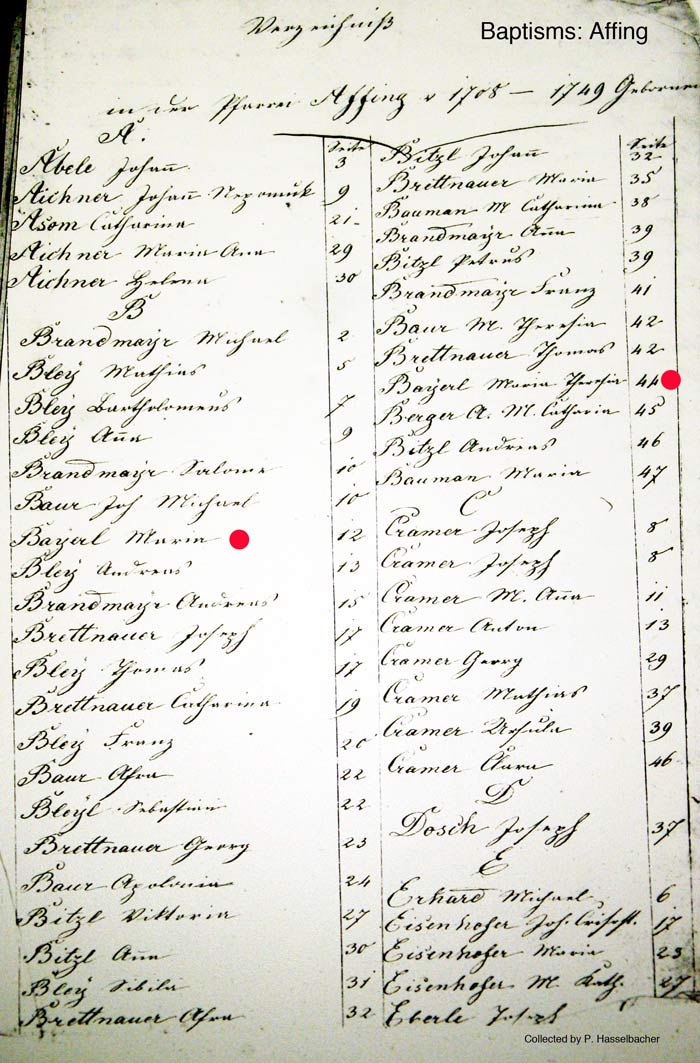 Verzeichniß
Baptisms: Affing
in der Pfarrei Affing v 1708 — 1749 Gebornen
A.
Seite
Abele Johañ 3
Aichner Johann Nepomuk 9
Asom Catharina 21
Aichner Maria Ana 29
Aichner Helena 30
B
Brandmayr Michael 2
Bley Mathias 5
Bley Bartholomeus 7
Bley Aña 9
Brandmayr Salome 10
Baur Joh Michael 10
Bayerl Maria 12
Bley Andreas 13
Brandmayr Andreas 15
Brettnauer Joseph 17
Bley Thomas 17
Brettnauer Catharina 19
Bley Franz 20
Baur Afra 22
Bleyl Sebastian 22
Brettnauer Georg 23
Baur Apolonia 24
Bitzl Viktoria 27
Bitzl Aña 30
Bley Sibila 31
Brettnauer Afra 32
Seite
Bitzl Johañ 32
Brettnauer Maria 35
Bauman M Catharina 38
Brandmayr Aña 39
Bitzl Petrus 39
Brandmayr Franz 41
Baur M. Theresia 42
Brettnauer Thomas 42
Bayerl Maria Theresia 44
Berger A. M. Catharia 45
Bitzl Andreas 46
Bauman Maria 47
C
Cramer Joseph 8
Cramer Joseph 8
Cramer M. Aña 11
Cramer Anton 13
Cramer Georg 29
Cramer Mathias 37
Cramer Ursula 39
Cramer Clara 46
D
Dosch Joseph 37
E
Erhard Michael 6
Eisenhofer Joh. 17
Eisenhofer Maria 23
Eisenhofer M. Kath. 27
Eberle Joseph
Collected by P. Hasselbacher